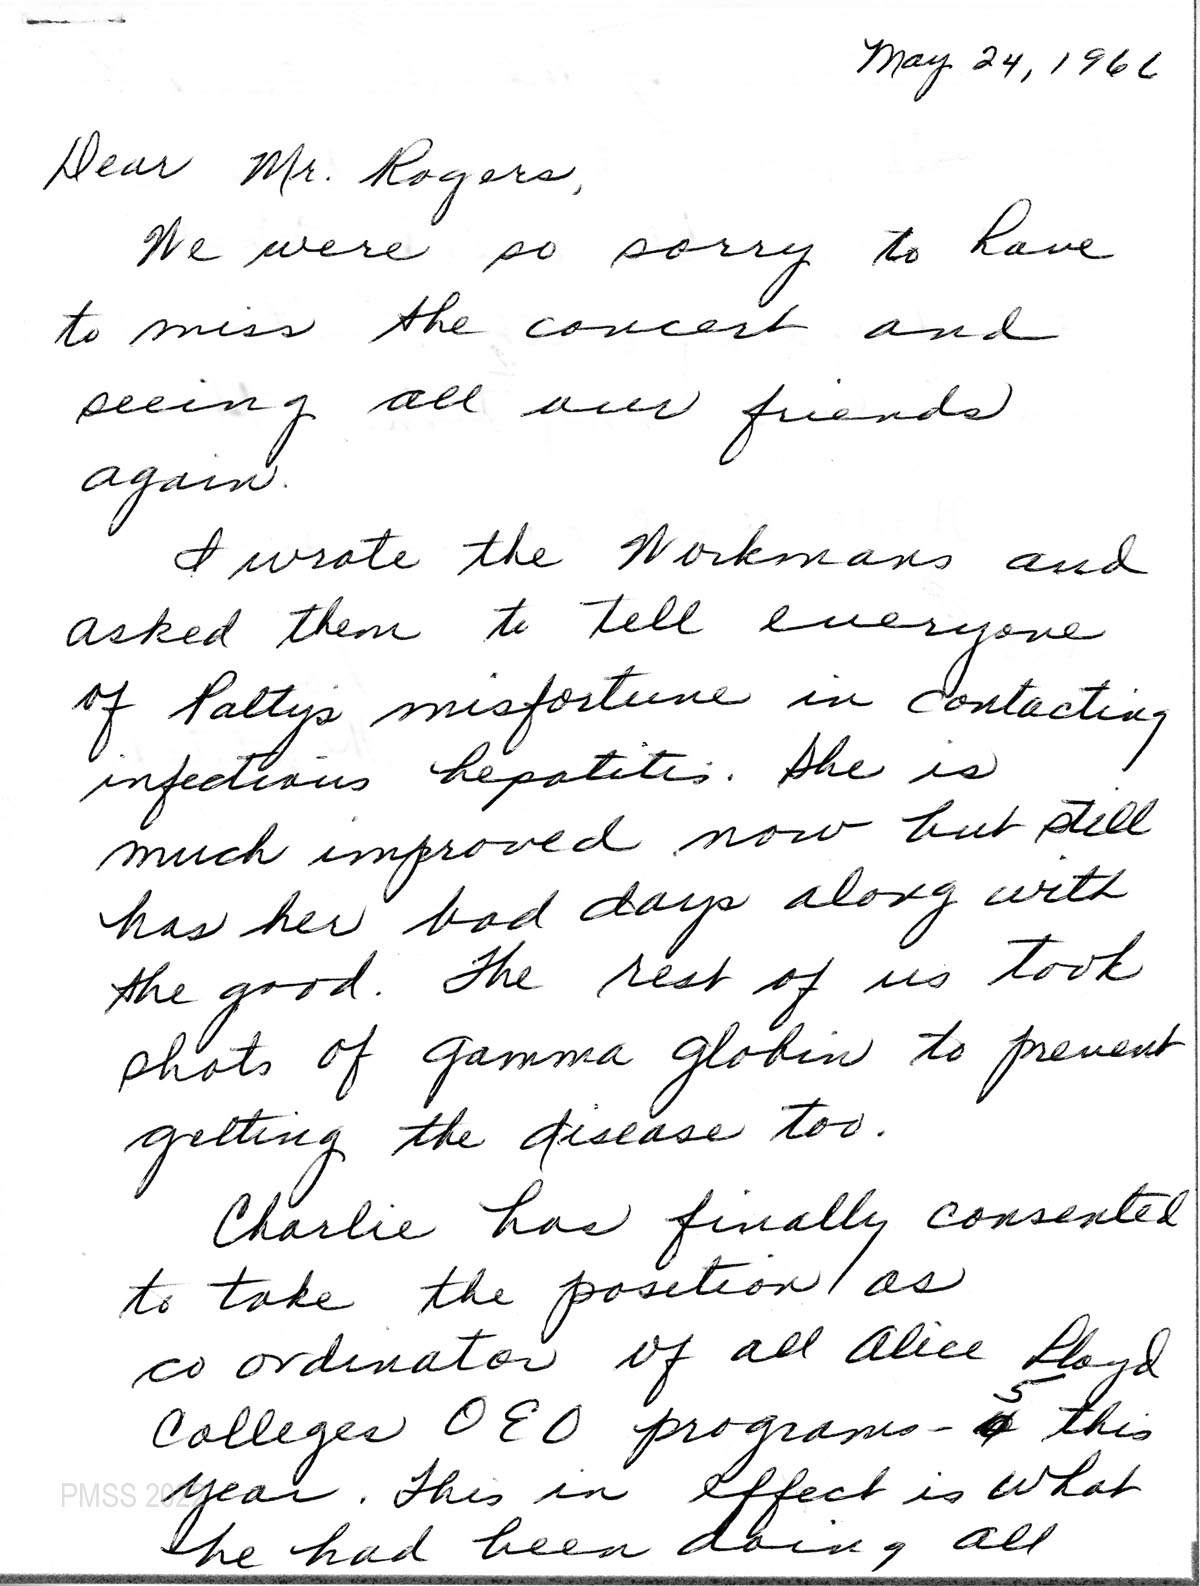 May 24, 1966
Dear Mr. Rogers,
We were so sorry to have
to miss the concert and
seeing all our friends
again.
I wrote the Workmans and
asked them to tell everyone
of Patty's misfortune in contacting
infectious hepatitis. She is
much improved now but still
has her bad days along with
the good. The rest of us took
shots of gamma globin to prevent
getting the disease too.
Charlie has finally consented
to take the position as
co ordinator of all Alice Lloyd
Colleges OEO programs - 5 this
year. This in effect is what
he had been doing all
PMSS 2022